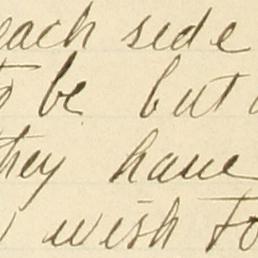 each side
to be but
they have
wish to